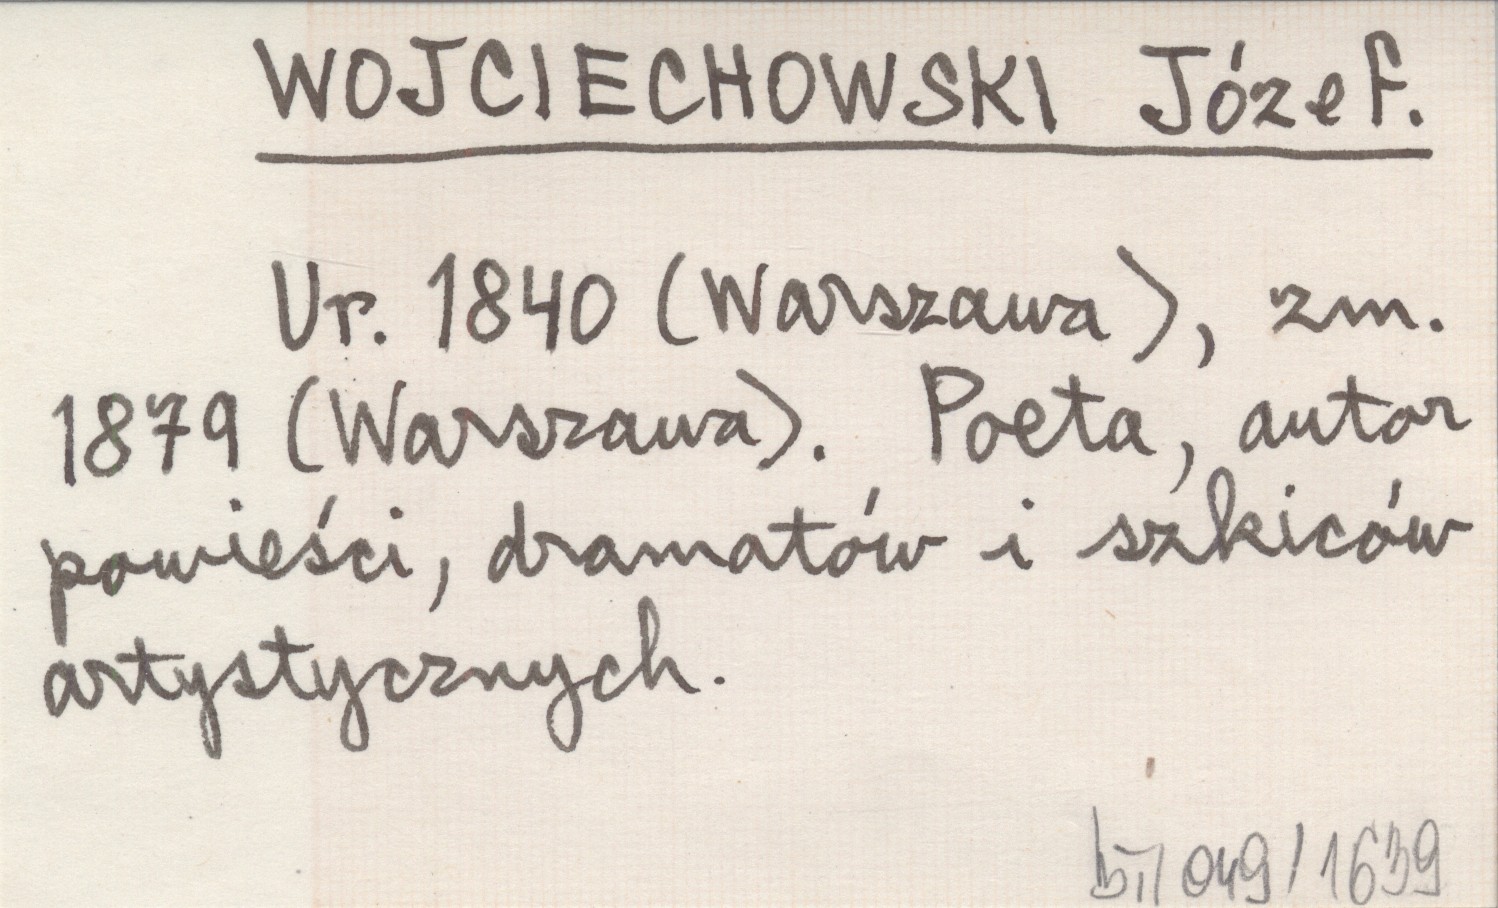 WOJCIECHOWSKI Józef.
Ur. 1840 (Warszawa), zm.
1879 (Warszawa). Poeta, autor
powieści, dramatów i szkiców
artystycznych.
049/1639